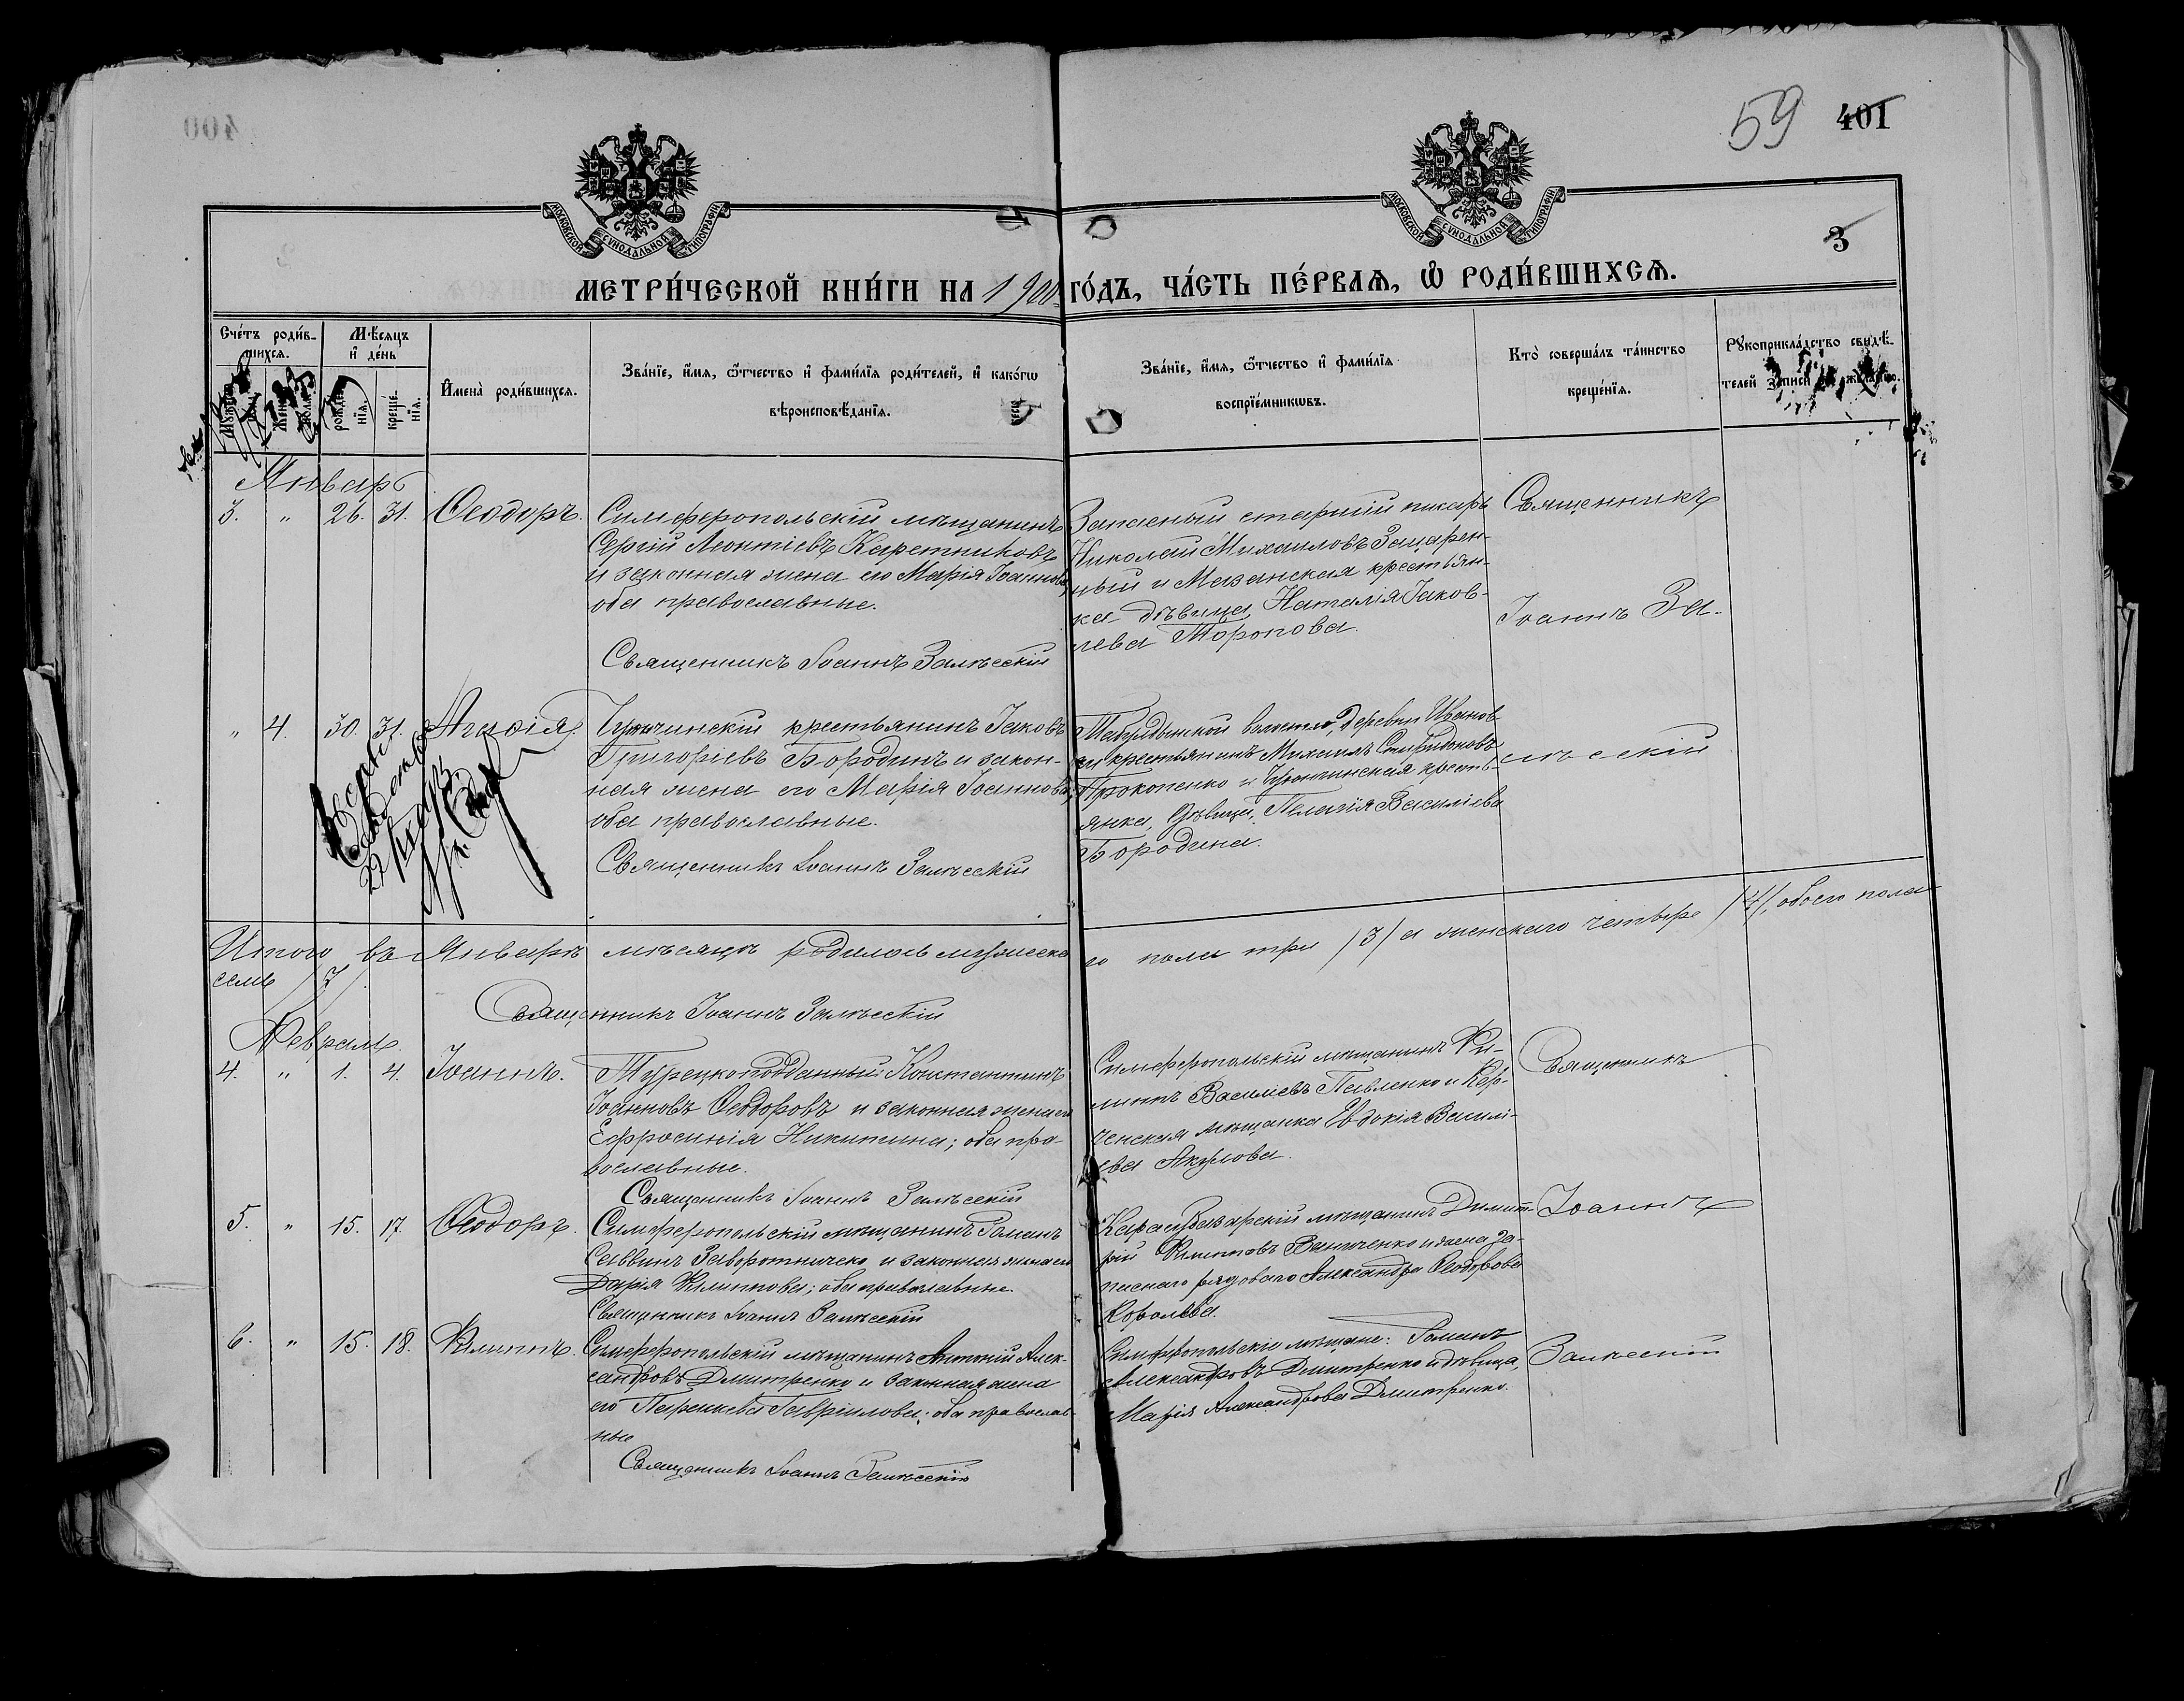 59 401
МОСКОВСКОЙ СУНОДАЛЬНОЙ ТИПОГРАФІИ
МОСКОВСКОЙ СУНОДАЛЬНОЙ ТИПОГРАФІИ
3
МЕТРИ́ЧЕСКОЙ КНИ́ГИ НА 1900 ГО́ДЪ, ЧА́СТЬ ПЕ́РВАѦ, Ѡ҆ РОДИ́ВШИХСѦ.
Сче́тъ роди́в-
шихсѧ.
Мѣ́сѧцъ
и҆ де́нь
рожде́-
нїѧ.
креще́-
нїѧ.
И҆мена̀ роди́вшихсѧ.
Зва́нїе, и҆́мѧ, ѻ҆́тчество и҆ фами́лїѧ роди́телей, и҆ како́гѡ
вѣроисповѣ́данїѧ.
Зва́нїе, и҆́мѧ, ѻ҆́тчество и҆ фами́лїѧ
воспрїе́мникѡвъ.
Кто̀ соверша́лъ та́инство
креще́нїѧ.
Рꙋкоприкла́дство свидѣ́-
телей записи
Январь
3. " 26. 31. Ѳеодоръ.
Симферопольскій мѣщанинъ
Сергій Леонтіевъ Каретниковъ
и законная жена его Марія Іоаннова,
оба православные.
Священникъ Іоаннъ Залѣсскій
Запасный старшій писарь
Николай Михаиловъ Зацарен-
ный и Мазанская крестьян-
ка дѣвица Наталія Іаков-
лева Торопова.
Священникъ
Іоаннъ За-
" 4. 30. 31. Агафія.
крестьянинъ Іаковъ
Григоріевъ Бородинъ и закон-
ная жена его Марія Іоаннова,
оба православные.
Священникъ Іоаннъ Залѣсскій
Табулдинской волости, деревни Иванов-
ки крестьянинъ Михаилъ Спиридоновъ
Прокопенко и крестъ-
янка, дѣвица, Пелагія Василіева
Бородина.
лѣсскій
22
Итого въ Январѣ мѣсяцѣ родилось мужеска-
го пола три /3/ а женскаго четыре /4/, обоего пола
семь /7/.
Священникъ Іоаннъ Залѣсскій
Февраль.
4. " 1. 4. Іоаннъ.
Турецкоподданный Константинъ
Іоанновъ Ѳеодоровъ и законная жена его
Ефросинія Никитина; оба пра-
вославные.
Священникъ Іоаннъ Залѣсскій
Симферопольскій мѣщанинъ Фи-
липпъ Василіевъ Павленко и Кер-
ченская мѣщанка Евдокія Васили-
ева Акулова.
Священникъ
5. " 15. 17. Ѳеодоръ.
Симферопольскій мѣщанинъ Романъ
Саввинъ и законная жена его
Дарія Филиппова; оба православные.
Священникъ Іоаннъ Залѣсскій
Карасубазарскій мѣщанинъ Димит-
рій Филипповъ и жена за-
паснаго рядоваго Александра Ѳеодорова
Королева.
Іоаннъ
6. " 15. 18. Филиппъ.
Симферопольскій мѣщанинъ Антоній Алек-
сандровъ Дмитренко и законная жена
его Параскева Гавріилова; оба православ-
ные
Священникъ Іоаннъ Залѣсскій
Симферопольскіе мѣщане: Романъ
Александровъ Дмитренко и дѣвица,
Марія Александрова Дмитренко.
Залѣсскій